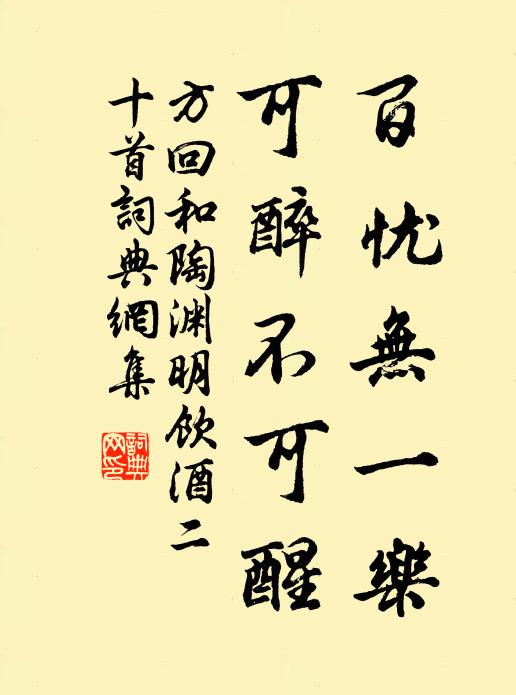 百忧無一樂
可醉不可醒
方回和陶渊明飲酒二
十首詞典網集
詞典
网印